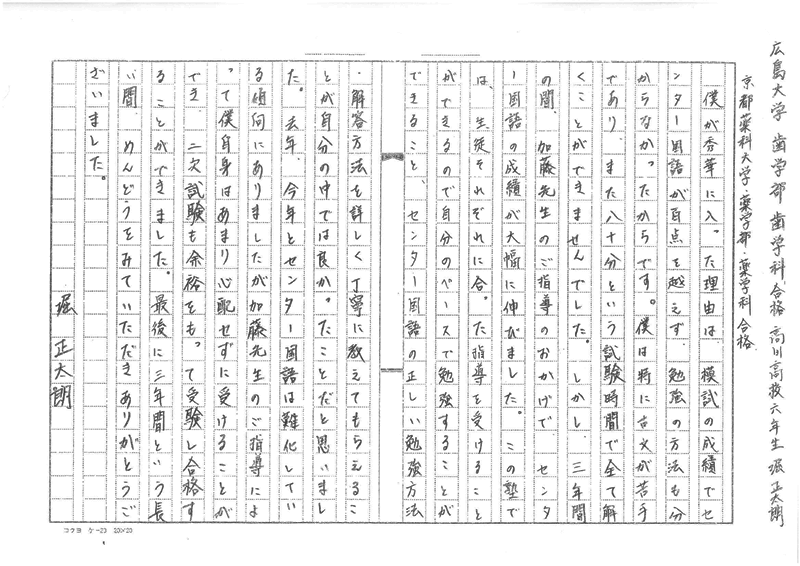 広島大学 歯学部 歯学科 合格 高川高校六年生 堀 正太朗
京都薬科大学・薬学部・薬学科 合格
僕が秀華に入った理由は、模試の成績でセ
ンター国語が百点を越えず、勉強の方法も分
からなかったからです。僕は特に古文が苦手
であり、また八十分という試験時間で全て解
くことができませんでした。しかし、三年間
の間、加藤先生のご指導のおかげで、センタ
ー国語の成績が大幅に伸びました。この塾で
は、生徒それぞれに合った指導を受けること
ができるので自分のペースで勉強することが
できること、センター国語の正しい勉強方法
・解答方法を詳しく丁寧に教えてもらえるこ
とが自分の中では良かったことだと思いまし
た。去年、今年とセンター国語は難化してい
る傾向にありましたが加藤先生のご指導によ
って僕自身はあまり心配せずに受けることが
でき、二次試験も余裕をもって受験し合格す
ることができました。最後に三年間という長
い間、めんどうをみていただきありがとうご
ざいました。
堀 正太朗
コクヨ ケー20 20×20